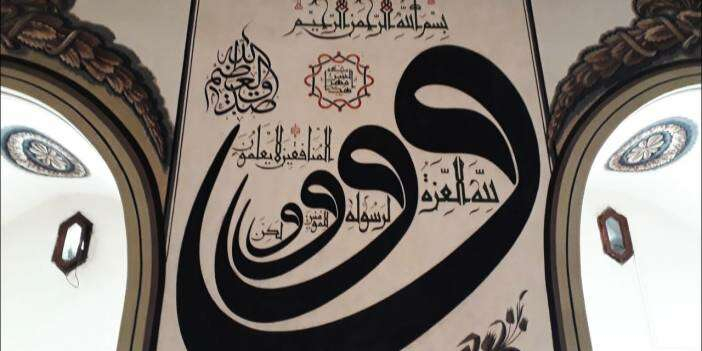 بسم الله الرحمن الرحيم
ولله العزة
ولرسوله
وللمؤمنين
ولكن
المنافقين لا يعلمون
صدق الله العظيم